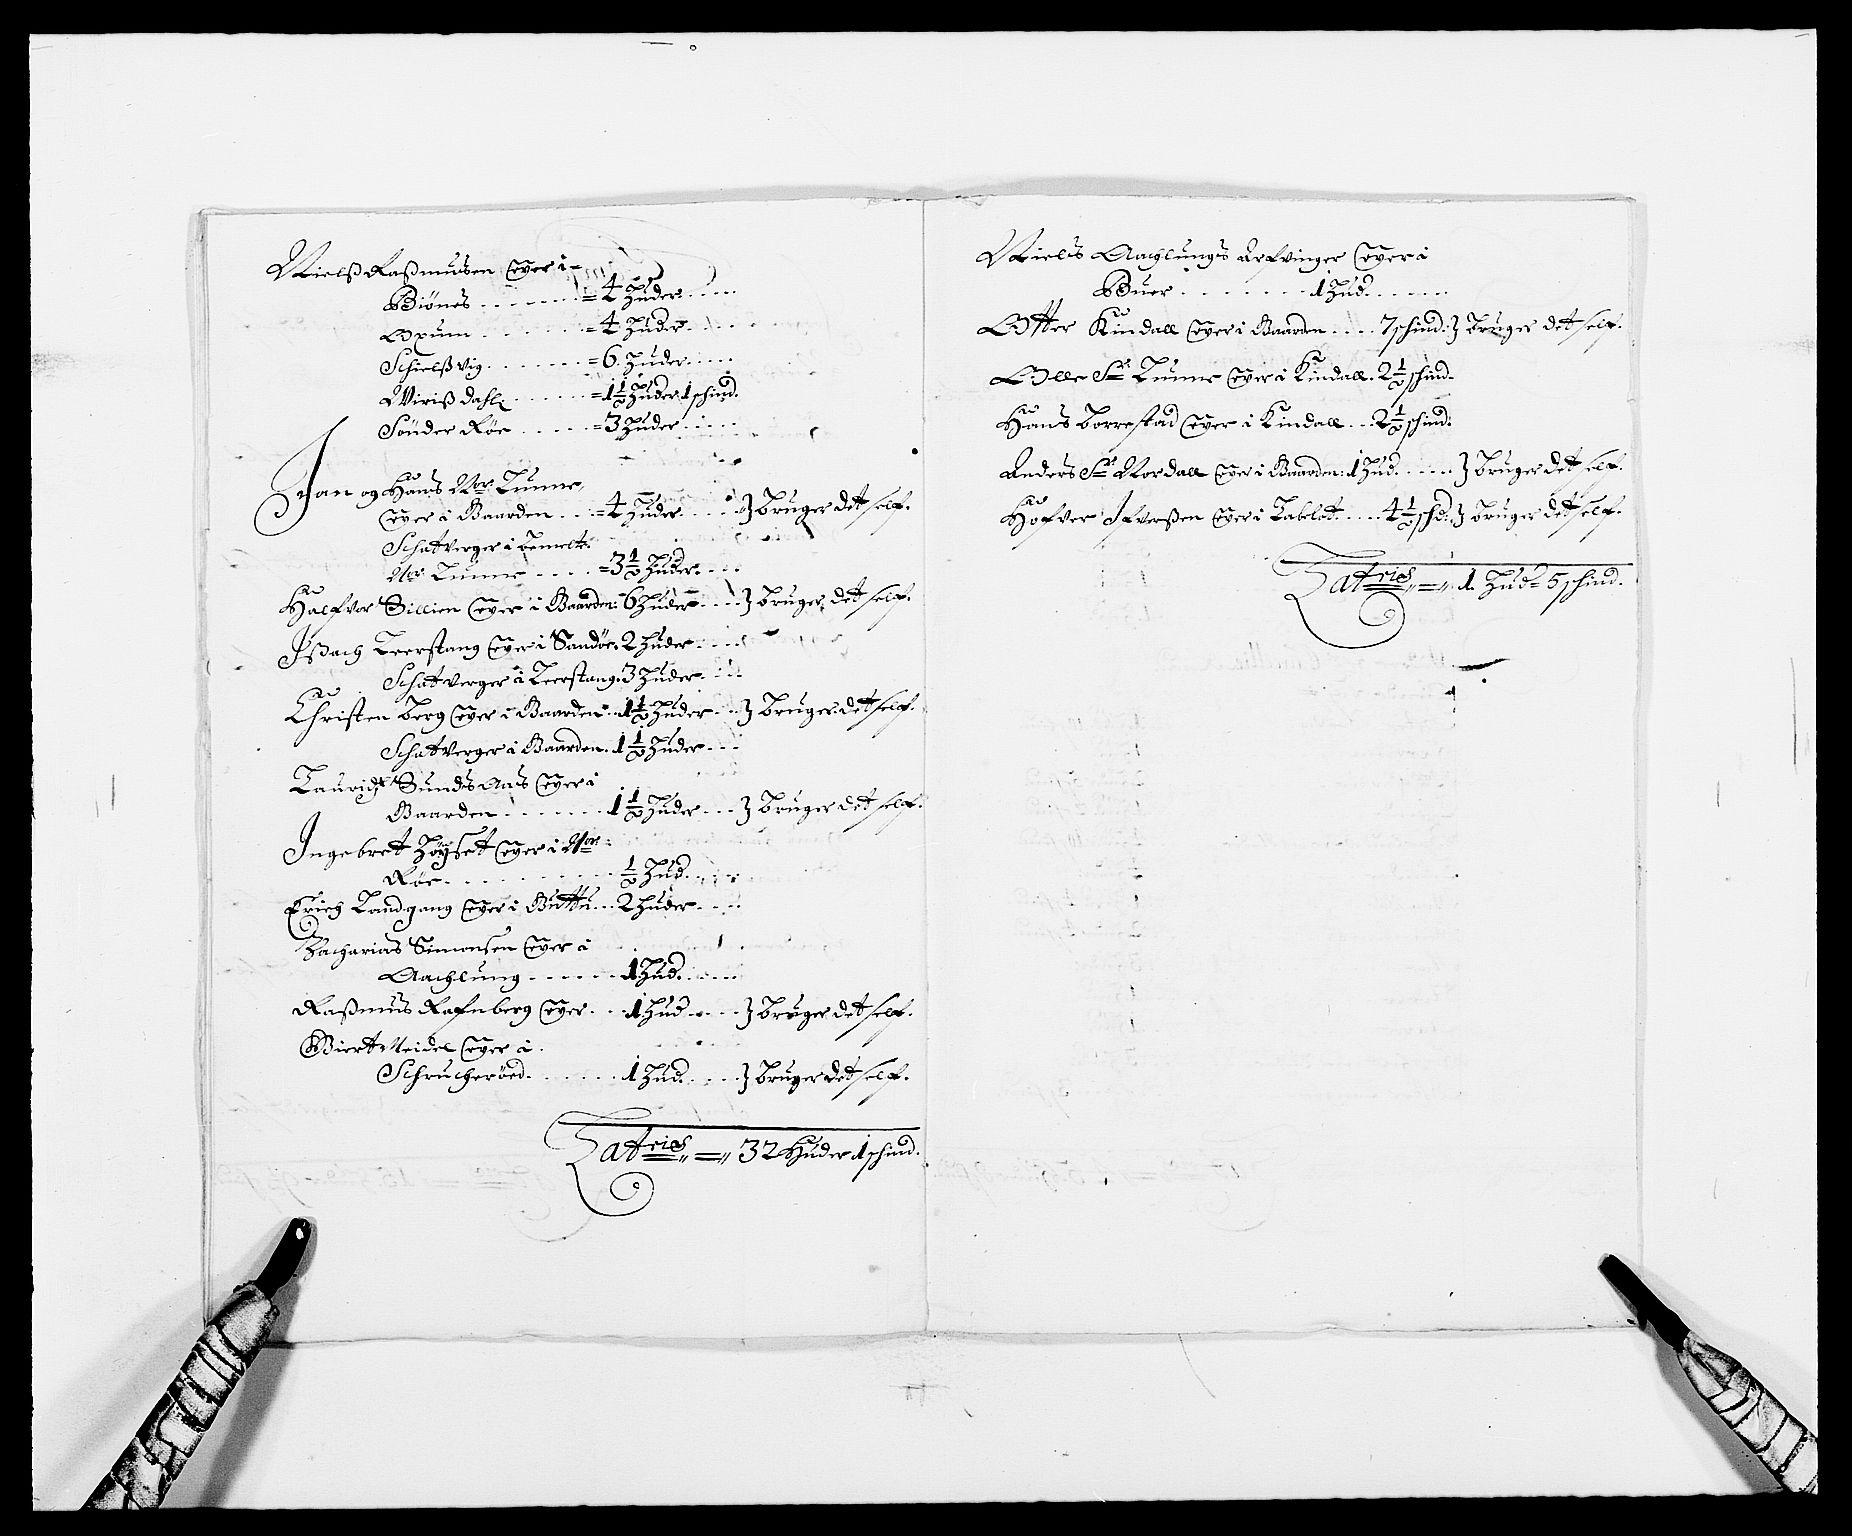 Nielß Raßmusen Eyer i
Biönes = 4 Huder
Oxum = 4 Huder
Schielßvig = 6 Huder
Viriß dahl = 1½ Huder 1 schind.
Sönder Röe = 3 Huder
Joan og Hans Nor Tunne,
Eyer i Gaarden = 4 Huder } bruger det self.
Schatverger i bemelte
Nor Tunne = 3½ Huder
Halfvor Sillien Eyer i Gaarden 6 Huder } bruger det self.
Ißach Leerstang Eyer i Sandöe 2 Huder
Schatverger i Leerstang 3 Huder
Christen berg Eyer i Gaarden 1½ Huder } bruger det self.
Schatverger i Gaarden 1½ Huder
Lauridtz Sundsaas Eyer i
Gaarden 1½ Huder } bruger det self.
Ingebret Höyset Eyer i Nor
Röe ½ Hud
Erich Landgang Eyer i Guttu 2 Huder
Zacharias Simonsen Eyer i
Aachlung 1 Hud.
Raßmus Rafnberg Eyer 1 Hud } bruger det self.
Giert Meidel Eyer i
Schrucheröed 1 Hud } bruger det self.
Latries = 32 Huder 1 schind.
Niels Aachlungs Arfvinger Eyer i
Buer 1 Hud
Otter Kindall Eyer i Gaarden 7 schind: } bruger det self.
Olle Sr Tunne Eyer i Kindall 2½ schind.
Hans borrestad Eyer i Kindall 2½ schind:
Anders Sr Nordall Eyer i Gaarden: 1 Hud } bruger det self.
Hofver Ifverßen Eyer i 4½ sch: } bruger det self.
Latries = 1 Hud 5 schind.